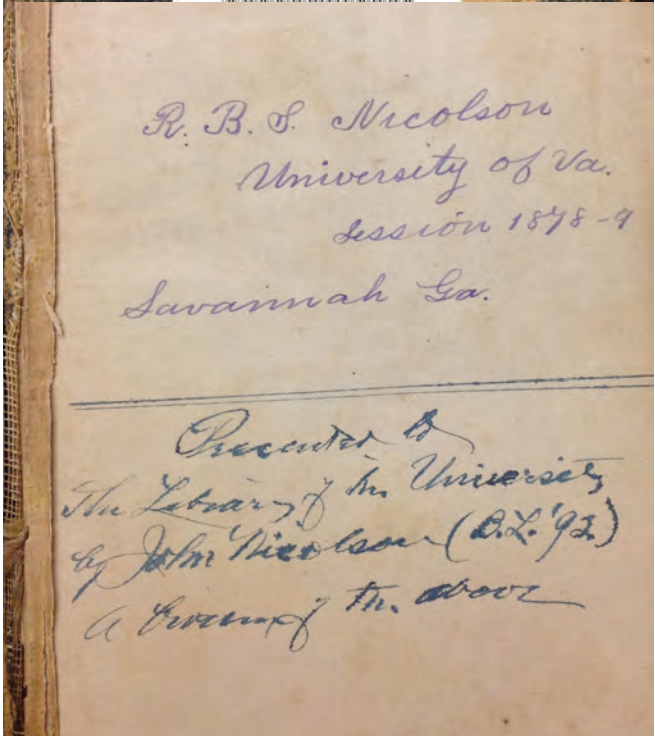 R. B. S. Nicolson
University of Va.
Session 1878-9
Savannah Ga.
Presented to
The Library of the University
by John Nicolson (B.L. '92)
A brother of the above